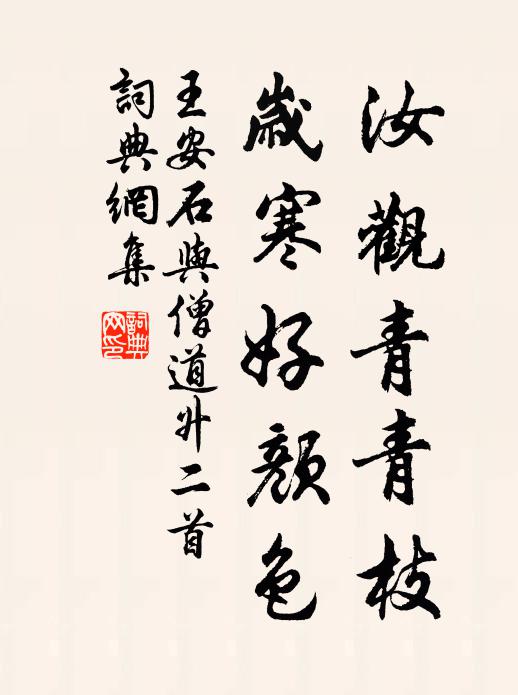 汝觀青青枝
歲寒好顏色
王安石與僧道升二首
詞典網集
詞典網印